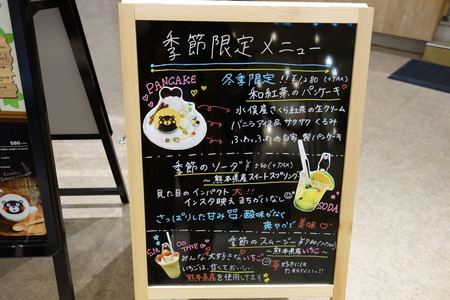 季節限定メニュー
PANCAKE
冬季限定!! ¥1,280 (+TAX)
和紅茶のパンケーキ
水俣産さくら紅茶の生クリーム
バニラアイス&サクサクくるみ
ふわふわの自家製パンケーキ
季節のソーダ ¥580 (+TAX)
〜熊本県産スイートスプリング
見た目のインパクト大!!
インスタ映えまちがいなし
さっぱりした甘み 酸味がなく
爽やかで美味♡
SODA
季節のスムージー
〜熊本県産いちご
みんな大好きさんいちご
いちごは、甘くておいしい
熊本県産を使用してます
苺好きには
たまらない!!
580